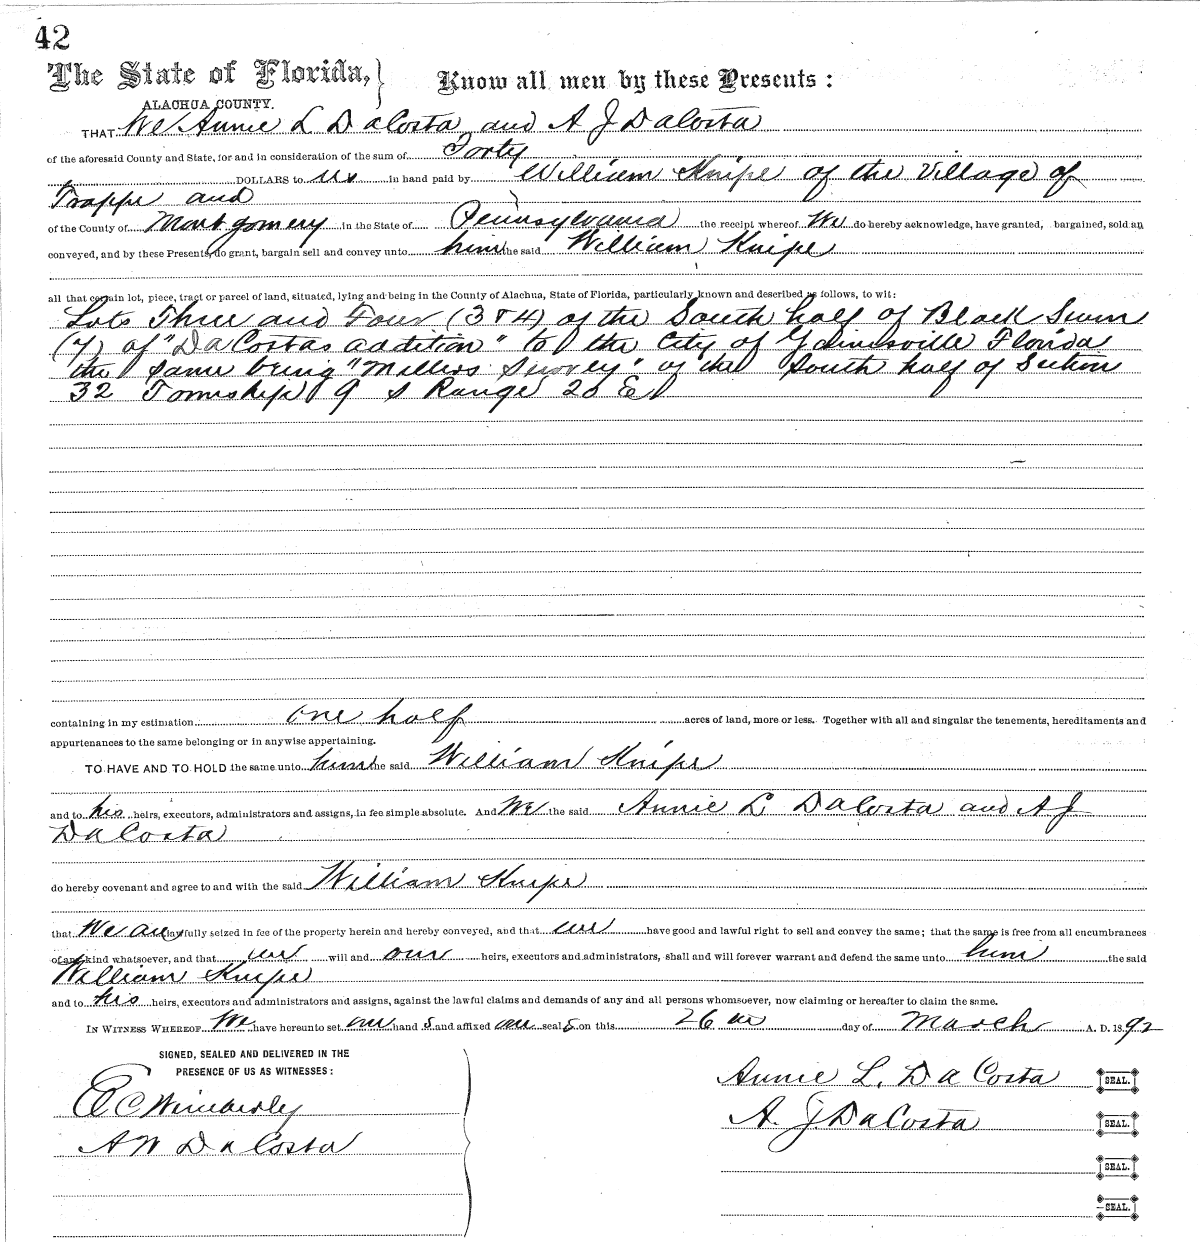 42
The State of Florida, } Know all men by these Presents :
ALACHUA COUNTY.
THAT We Annie L DaCosta and A J DaCosta
of the aforesaid County and State, for and in consideration of the sum of Forty
DOLLARS to us in hand paid by William Knipe of the Village of
Trappe and
of the County of Montgomery in the State of Pennsylvania the receipt whereof We do hereby acknowledge, have granted, bargained, sold an
conveyed, and by these Presents, do grant, bargain sell and convey unto him the said William Knipe
all that certain lot, piece, tract or parcel of land, situated, lying and being in the County of Alachua, State of Florida, particularly known and described as follows, to wit:
Lots Three and Four (3 & 4) of the South half of Block Seven
(7) of "DaCostas addition" to the City of Gainesville Florida
the same being "Millers Survey" of the South half of Section
32 Township 9 S Range 20 E
containing in my estimation one half acres of land, more or less. Together with all and singular the tenements, hereditaments and
appurtenances to the same belonging or in anywise appertaining.
TO HAVE AND TO HOLD the same unto him the said William Knipe
and to his heirs, executors, administrators and assigns, in fee simple absolute. And We the said Annie L DaCosta and A J
DaCosta
do hereby covenant and agree to and with the said William Knipe
that We are lawfully seized in fee of the property herein and hereby conveyed, and that we have good and lawful right to sell and convey the same; that the same is free from all encumbrances
of any kind whatsoever, and that we will and our heirs, executors and administrators, shall and will forever warrant and defend the same unto him the said
William Knipe
and to his heirs, executors and administrators and assigns, against the lawful claims and demands of any and all persons whomsoever, now claiming or hereafter to claim the same.
IN WITNESS WHEREOF We have hereunto set our hand s and affixed our seal s on this 26 day of March A. D. 1892
SIGNED, SEALED AND DELIVERED IN THE
PRESENCE OF US AS WITNESSES :
Annie L. DaCosta SEAL.
E C Wimberly
A. J. DaCosta SEAL.
A W DaCosta
SEAL.
SEAL.